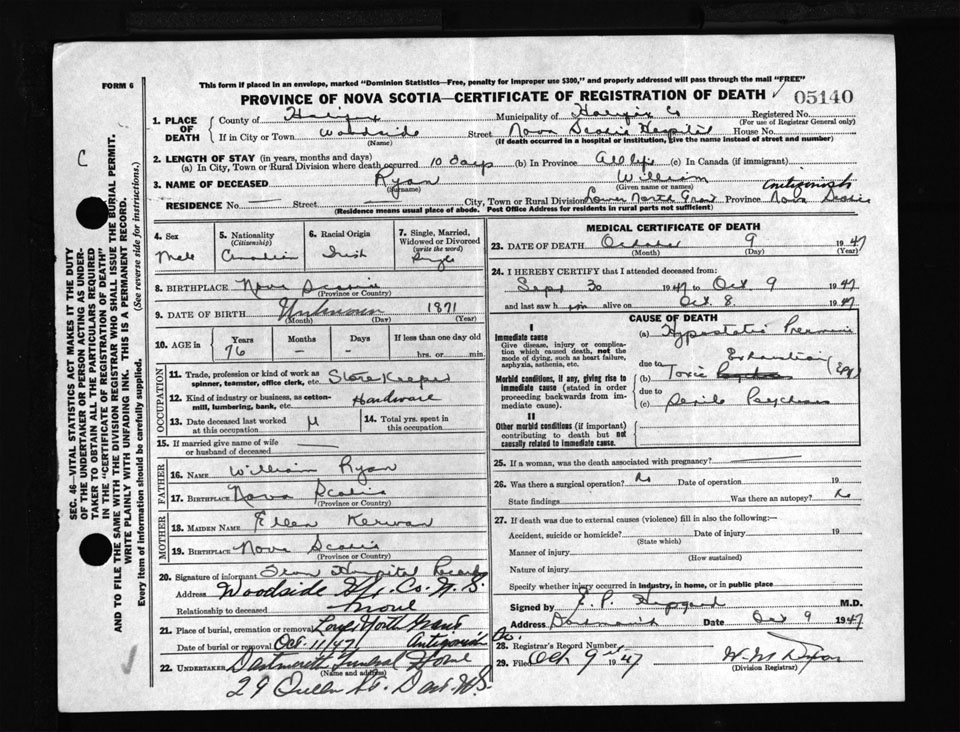 FORM 6
This form if placed in an envelope, marked "Dominion Statistics—Free, penalty for improper use $300," and properly addressed will pass through the mail "FREE"
PROVINCE OF NOVA SCOTIA—CERTIFICATE OF REGISTRATION OF DEATH
05140
1. PLACE OF DEATH
County of Halifax Municipality of Halifax Co Registered No.
(For use of Registrar General only)
If in City or Town Woodside Street Nova Scotia Hospital House No.
(Name) (If death occurred in a hospital or institution, give the name instead of street and number)
2. LENGTH OF STAY (in years, months and days)
(a) In City, Town or Rural Division where death occurred 10 days (b) In Province All life (c) In Canada (if immigrant)
3. NAME OF DECEASED Ryan William
(Surname) (Given name or names)
Antigonish
RESIDENCE No. — Street — City, Town or Rural Division Lower North Grant Province Nova Scotia
(Residence means usual place of abode. Post Office Address for residents in rural parts not sufficient)
4. Sex Male
5. Nationality (Citizenship) Canadian
6. Racial Origin Irish
7. Single, Married, Widowed or Divorced (write the word) Single
8. BIRTHPLACE Nova Scotia
(Province or Country)
9. DATE OF BIRTH Unknown 1871
(Month) (Day) (Year)
10. AGE in Years Months Days If less than one day old
76 - - hrs. or min.
OCCUPATION
11. Trade, profession or kind of work as spinner, teamster, office clerk, etc. Store Keeper
12. Kind of industry or business, as cotton-mill, lumbering, bank, etc. Hardware
13. Date deceased last worked at this occupation
14. Total yrs. spent in this occupation
15. If married give name of wife or husband of deceased —
FATHER
16. NAME William Ryan
17. BIRTHPLACE Nova Scotia
MOTHER
18. MAIDEN NAME Ellen Kerwan
19. BIRTHPLACE Nova Scotia
(Province or Country)
20. Signature of informant From Hospital Records
Address Woodside Hfx. Co. N.S.
Relationship to deceased None
21. Place of burial, cremation or removal Lower North Grant
Date of burial or removal Oct. 11/47 Antigonish Co.
22. UNDERTAKER Dartmouth Funeral Home
(Name and address)
29 Queen St. Dart. N.S.
MEDICAL CERTIFICATE OF DEATH
23. DATE OF DEATH October 9 1947
(Month) (Day) (Year)
24. I HEREBY CERTIFY that I attended deceased from:
Sept 30 1947 to Oct 9 1947
and last saw him alive on Oct. 8. 1947
CAUSE OF DEATH
I
Immediate cause
Give disease, injury or complication which caused death, not the mode of dying, such as heart failure, asphyxia, asthenia, etc.
(a) Hypostatic Pneumonia
Morbid conditions, if any, giving rise to immediate cause (stated in order proceeding backwards from immediate cause).
due to
(b) Toxic Exhaustion
due to
(c) Senile Psychosis
II
Other morbid conditions (if important) contributing to death but not causally related to immediate cause.
25. If a woman, was the death associated with pregnancy?
26. Was there a surgical operation? No Date of operation 19
State findings Was there an autopsy? No
27. If death was due to external causes (violence) fill in also the following:—
Accident, suicide or homicide? Date of injury 19
(State which)
Manner of injury
(How sustained)
Nature of injury
Specify whether injury occurred in industry, in home, or in public place
Signed by M.D.
Address Dartmouth Date Oct 9 1947
28. Registrar's Record Number
29. Filed Oct 9th 1947
(Division Registrar)
SEC. 46—VITAL STATISTICS ACT MAKES IT THE DUTY
OF THE UNDERTAKER OR PERSON ACTING AS UNDERTAKER TO OBTAIN ALL THE PARTICULARS REQUIRED
IN THE "CERTIFICATE OF REGISTRATION OF DEATH"
AND TO FILE THE SAME WITH THE DIVISION REGISTRAR WHO SHALL ISSUE THE BURIAL PERMIT.
WRITE PLAINLY WITH UNFADING INK. THIS IS A PERMANENT RECORD.
Every item of information should be carefully supplied. (See reverse side for instructions.)
C